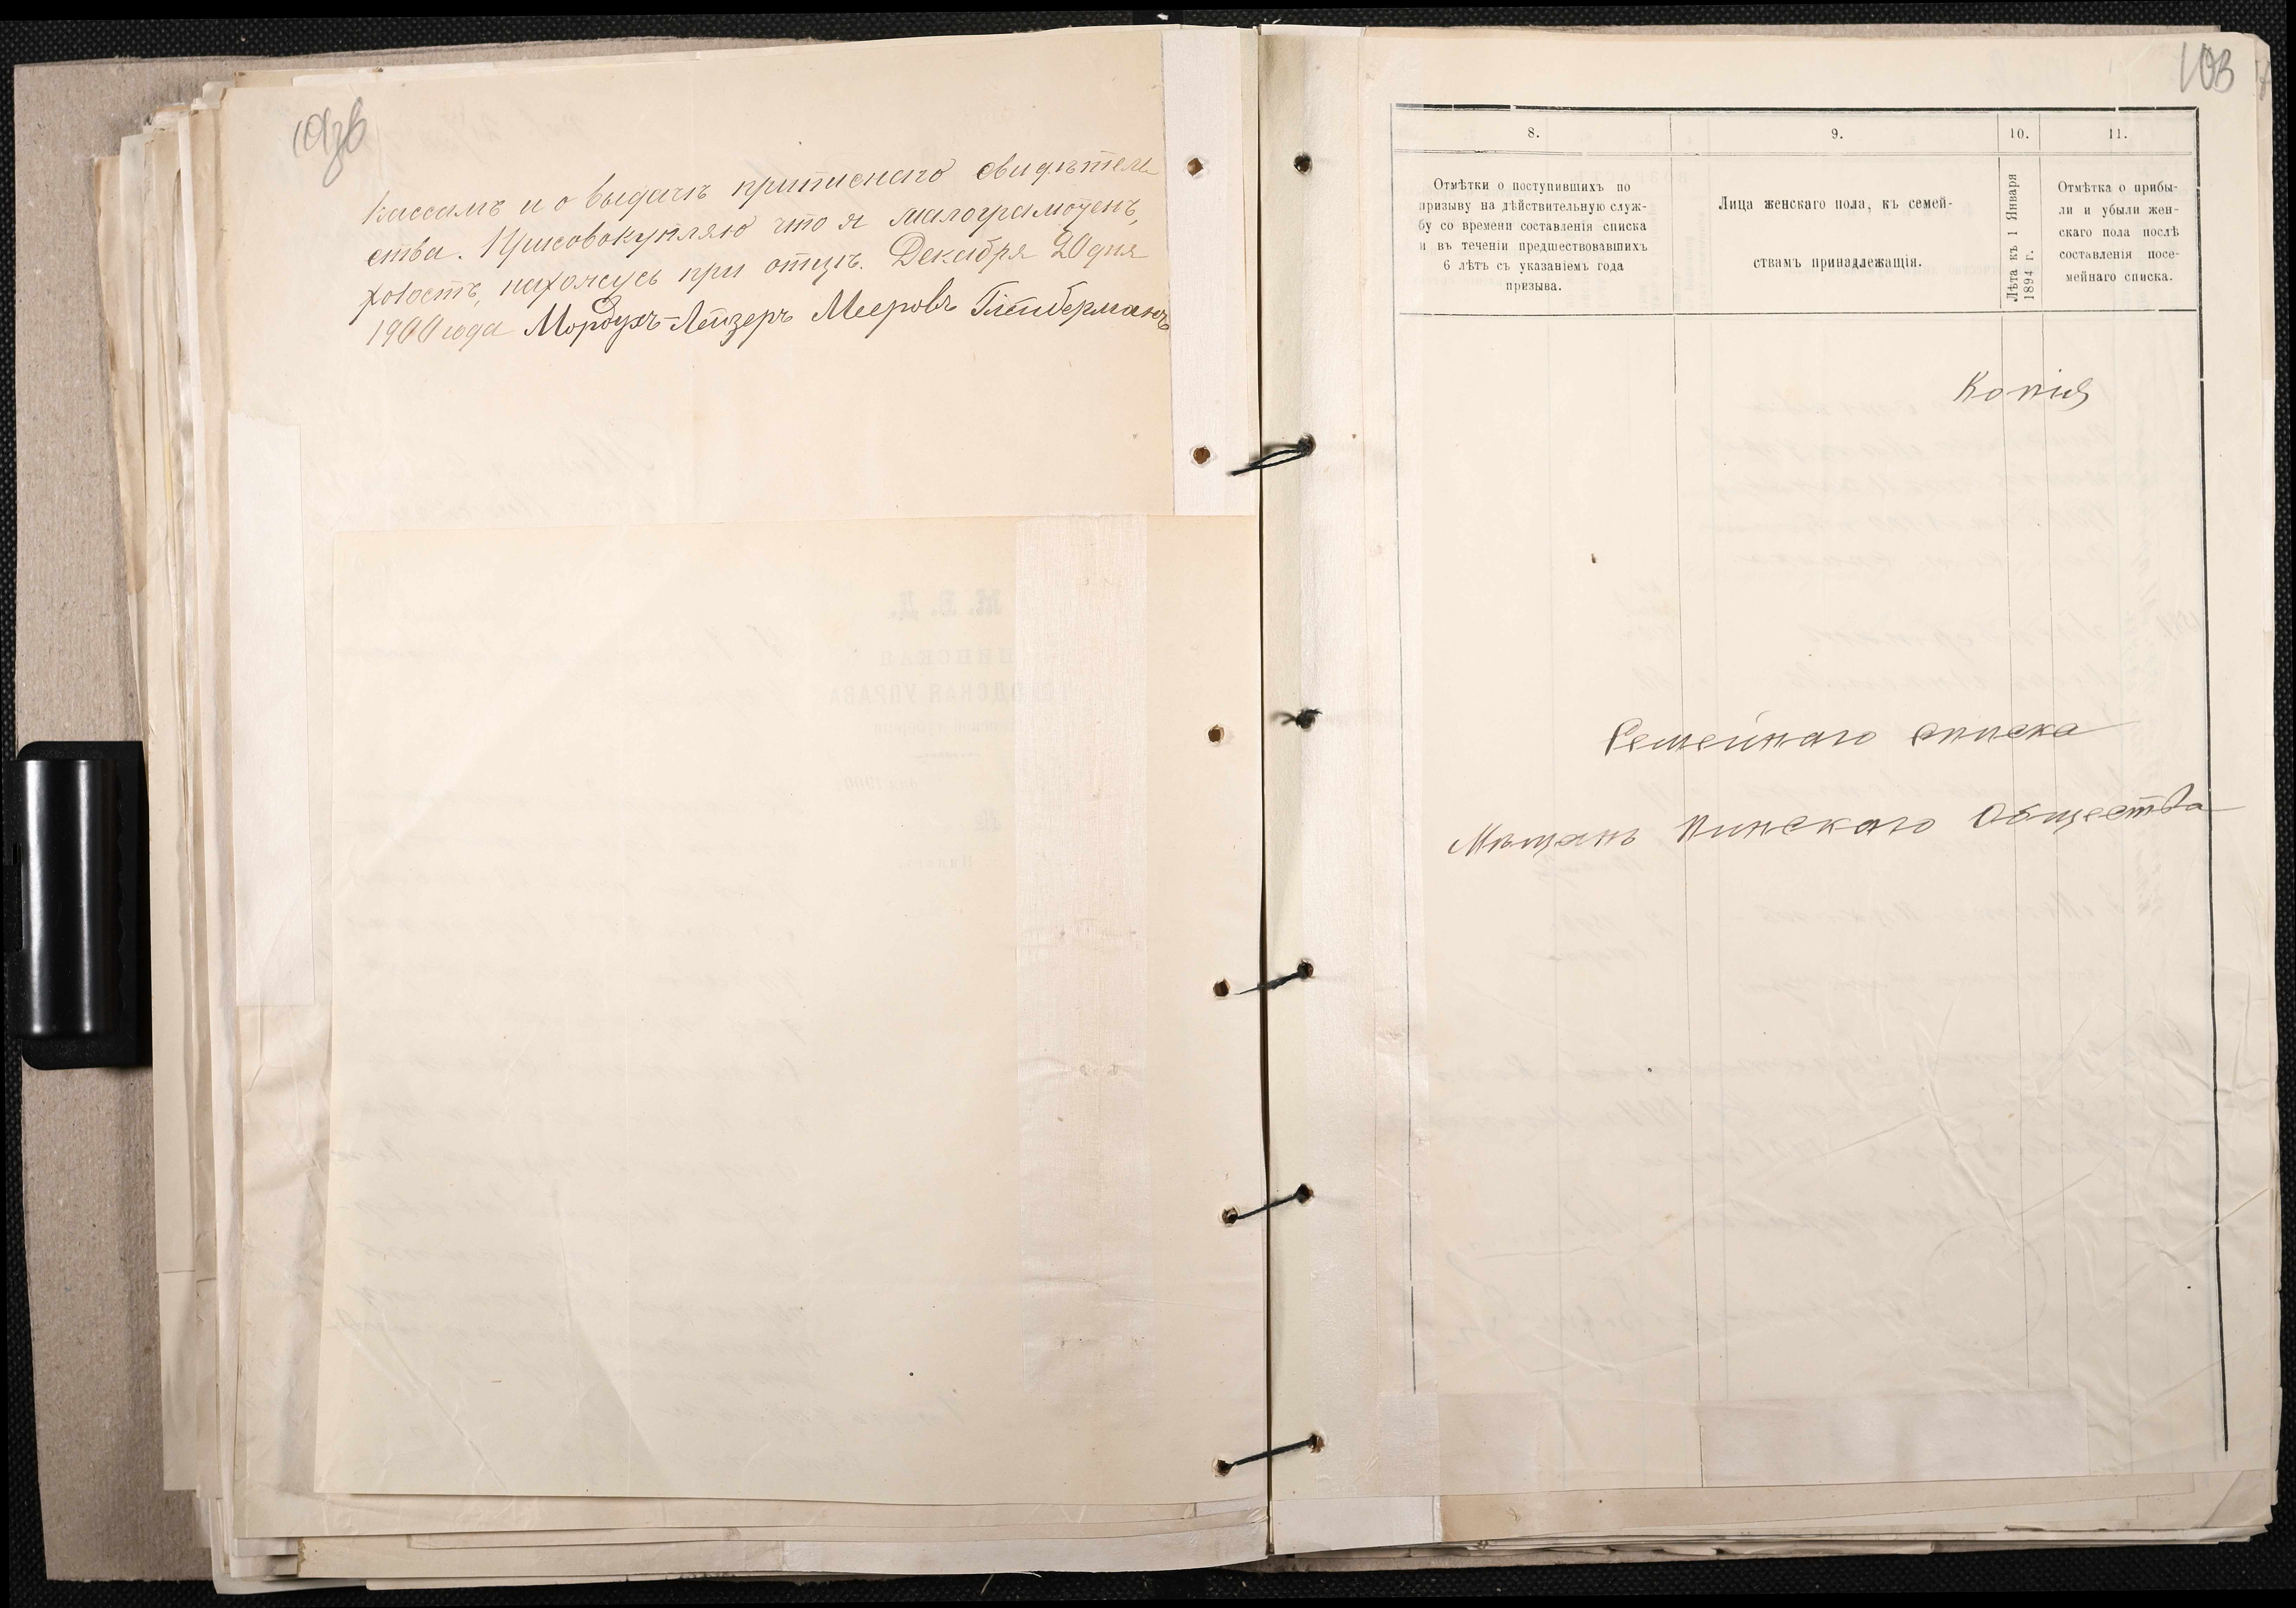 102об
кассамъ и о выдачѣ приписнаго свидѣтель
ства. Присовокупляю что я малограмотенъ,
холостъ, нахожусь при отцѣ. Декабря 20 дня
1900 года Мордухъ-Лейзеръ Мееровъ Глейберманъ
103
8.
9.
10.
11.
Отмѣтки о поступившихъ по
призыву на дѣйствительную служ-
бу со времени составленія списка
и въ теченіи предшествовавшихъ
6 лѣтъ съ указаніемъ года
призыва.
Лица женскаго пола, къ семей-
ствамъ принадлежащія.
Лѣта къ 1 Января
1894 г.
Отмѣтка о прибы-
ли и убыли жен-
скаго пола послѣ
составленія посе-
мейнаго списка.
Копія
Семейнаго списка
Мѣщанъ Пинскаго Общества